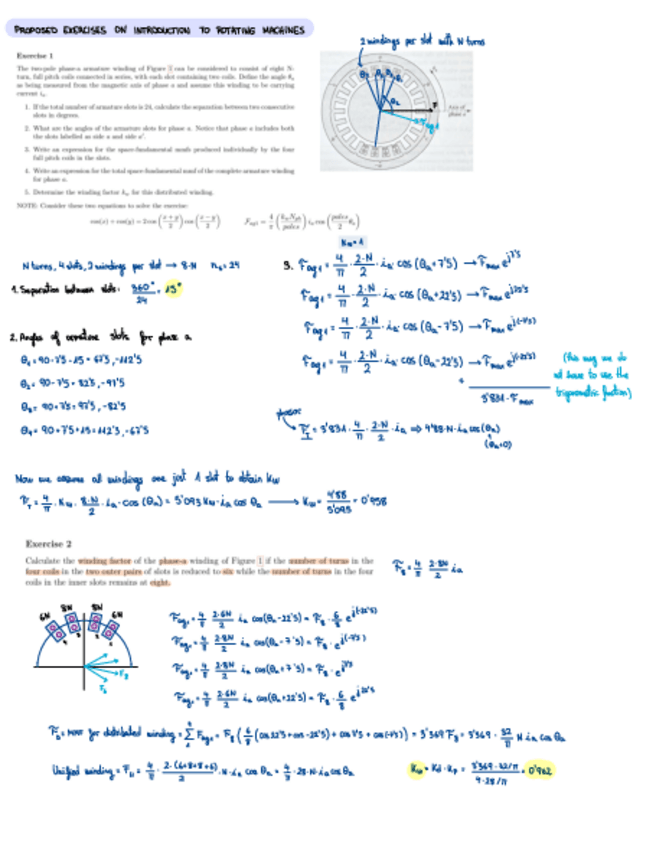 PROPOSED EXERCISES ON INTRODUCTION TO ROTATING MACHINES
Exercise 1
The two-pole phase-a armature winding of Figure 1 can be considered to consist of eight N-
turn, full pitch coils connected in series, with each slot containing two coils. Define the angle θa
as being measured from the magnetic axis of phase a and assume this winding to be carrying
current ia.
1. If the total number of armature slots is 24, calculate the separation between two consecutive
slots in degrees.
2. What are the angles of the armature slots for phase a. Notice that phase a includes both
the slots labelled as side a and side a'.
3. Write an expression for the space-fundamental mmfs produced individually by the four
full pitch coils in the slots.
4. Write an expression for the total space-fundamental mmf of the complete armature winding
for phase a.
5. Determine the winding factor kw for this distributed winding.
NOTE: Consider these two equations to solve the exercise:
cos(x) + cos(y) = 2 cos((x + y)/2) cos((x − y)/2) Fag1 = 4/π (kw Nph / poles) ia cos(poles/2 θa)
2 windings per slot with N turns
Axis of
phase a
Kw=1
N turns, 4 slots, 2 windings per slot → 8·N ns=24
1. Separation between slots: 360°/24 = 15°
2. Angles of armature slots for phase a
θ1 = 90-7'5-15 = 67'5, -112'5
θ2 = 90-7'5 = 82'5, -97'5
θ3 = 90+7'5 = 97'5, -82'5
θ4 = 90+7'5+15 = 112'5, -67'5
3. Fag1 = 4/π · 2·N/2 · ia· cos(θa+7'5) → Fmax e^j7'5
Fag1 = 4/π · 2·N/2 · ia· cos(θa+22'5) → Fmax e^j22'5
Fag1 = 4/π · 2·N/2 · ia· cos(θa-7'5) → Fmax e^j(-7'5)
Fag1 = 4/π · 2·N/2 · ia· cos(θa-22'5) → Fmax e^j(-22'5)
+
3'831·Fmax
(this way we do
not have to use the
trigonometric function)
phasor
FT = 3'831 · 4/π · 2·N/2 · ia ⇒ 4'88·N·ia cos(θa)
(θa=0)
Now we assume all windings are just 1 slot to obtain Kw
FT = 4/π · Kw · 8·N/2 · ia·cos(θa) = 5'093 Kw·N·ia cos θa → Kw = 4'88/5'093 = 0'958
Exercise 2
Calculate the winding factor of the phase-a winding of Figure 1 if the number of turns in the
four coils in the two outer pairs of slots is reduced to six while the number of turns in the four
coils in the inner slots remains at eight.
F8 = 4/π 2·8N/2 ia
6N 8N 8N 6N
Fag1 = 4/π 2·6N/2 ia cos(θa-22'5) = F8 · 6/8 e^j(-22'5)
Fag1 = 4/π 2·8N/2 ia cos(θa-7'5) = F8 · e^j(-7'5)
Fag1 = 4/π 2·8N/2 ia cos(θa+7'5) = F8 · e^j7'5
Fag1 = 4/π 2·6N/2 ia cos(θa+22'5) = F8 · 6/8 e^j22'5
FD = MMF for distributed winding = Σ Fag1 = F8 (6/8 (cos 22'5 + cos -22'5) + cos 7'5 + cos(-7'5)) = 3'369 F8 = 3'369 · 32/π N ia cos θa
Unified winding = FU = 4/π · 2·(6+8+8+6)/2 · N·ia cos θa = 4/π · 28·N·ia cos θa
Kw = Kd·Kp = 3'369·32/π / 4·28/π = 0'962